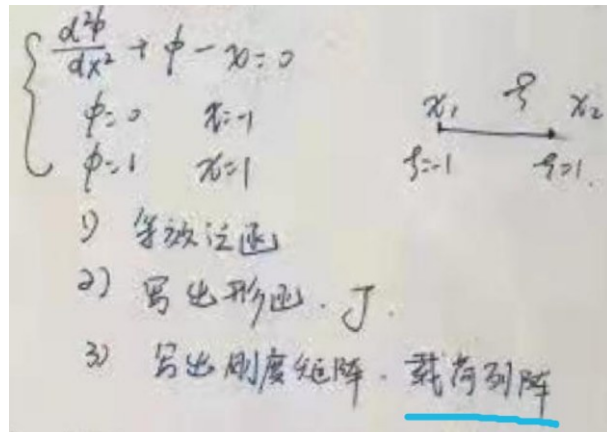 d²φ/dx² + φ - x = 0
φ=0 x=-1
φ=1 x=1
x₁ ξ x₂
ξ=-1 ξ=1.
1) 等效泛函
2) 写出形函. J.
3) 写出刚度矩阵. 载荷列阵